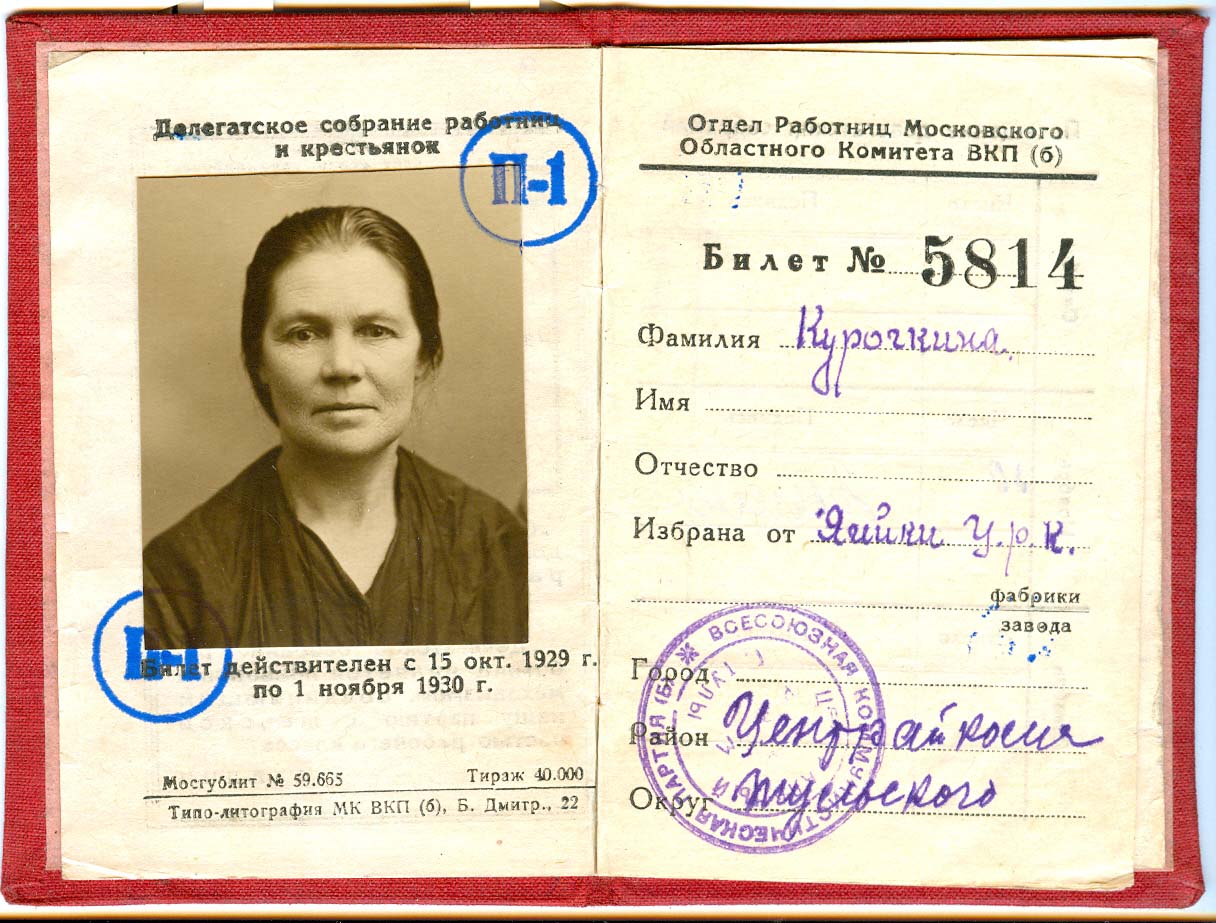 Делегатское собрание работниц
и крестьянок
П-1
Билет действителен с 15 окт. 1929 г.
по 1 ноября 1930 г.
Мосгублит № 59.665 Тираж 40.000
Типо-литография МК ВКП (б), Б. Дмитр., 22
Отдел Работниц Московского
Областного Комитета ВКП (б)
Билет № 5814
Фамилия Курочкина
Имя
Отчество
Избрана от У.р.к.
фабрики
завода
Город
Район
Округ Тульского
ВСЕСОЮЗНАЯ КОММУНИСТИЧЕСКАЯ ПАРТИЯ (Б)